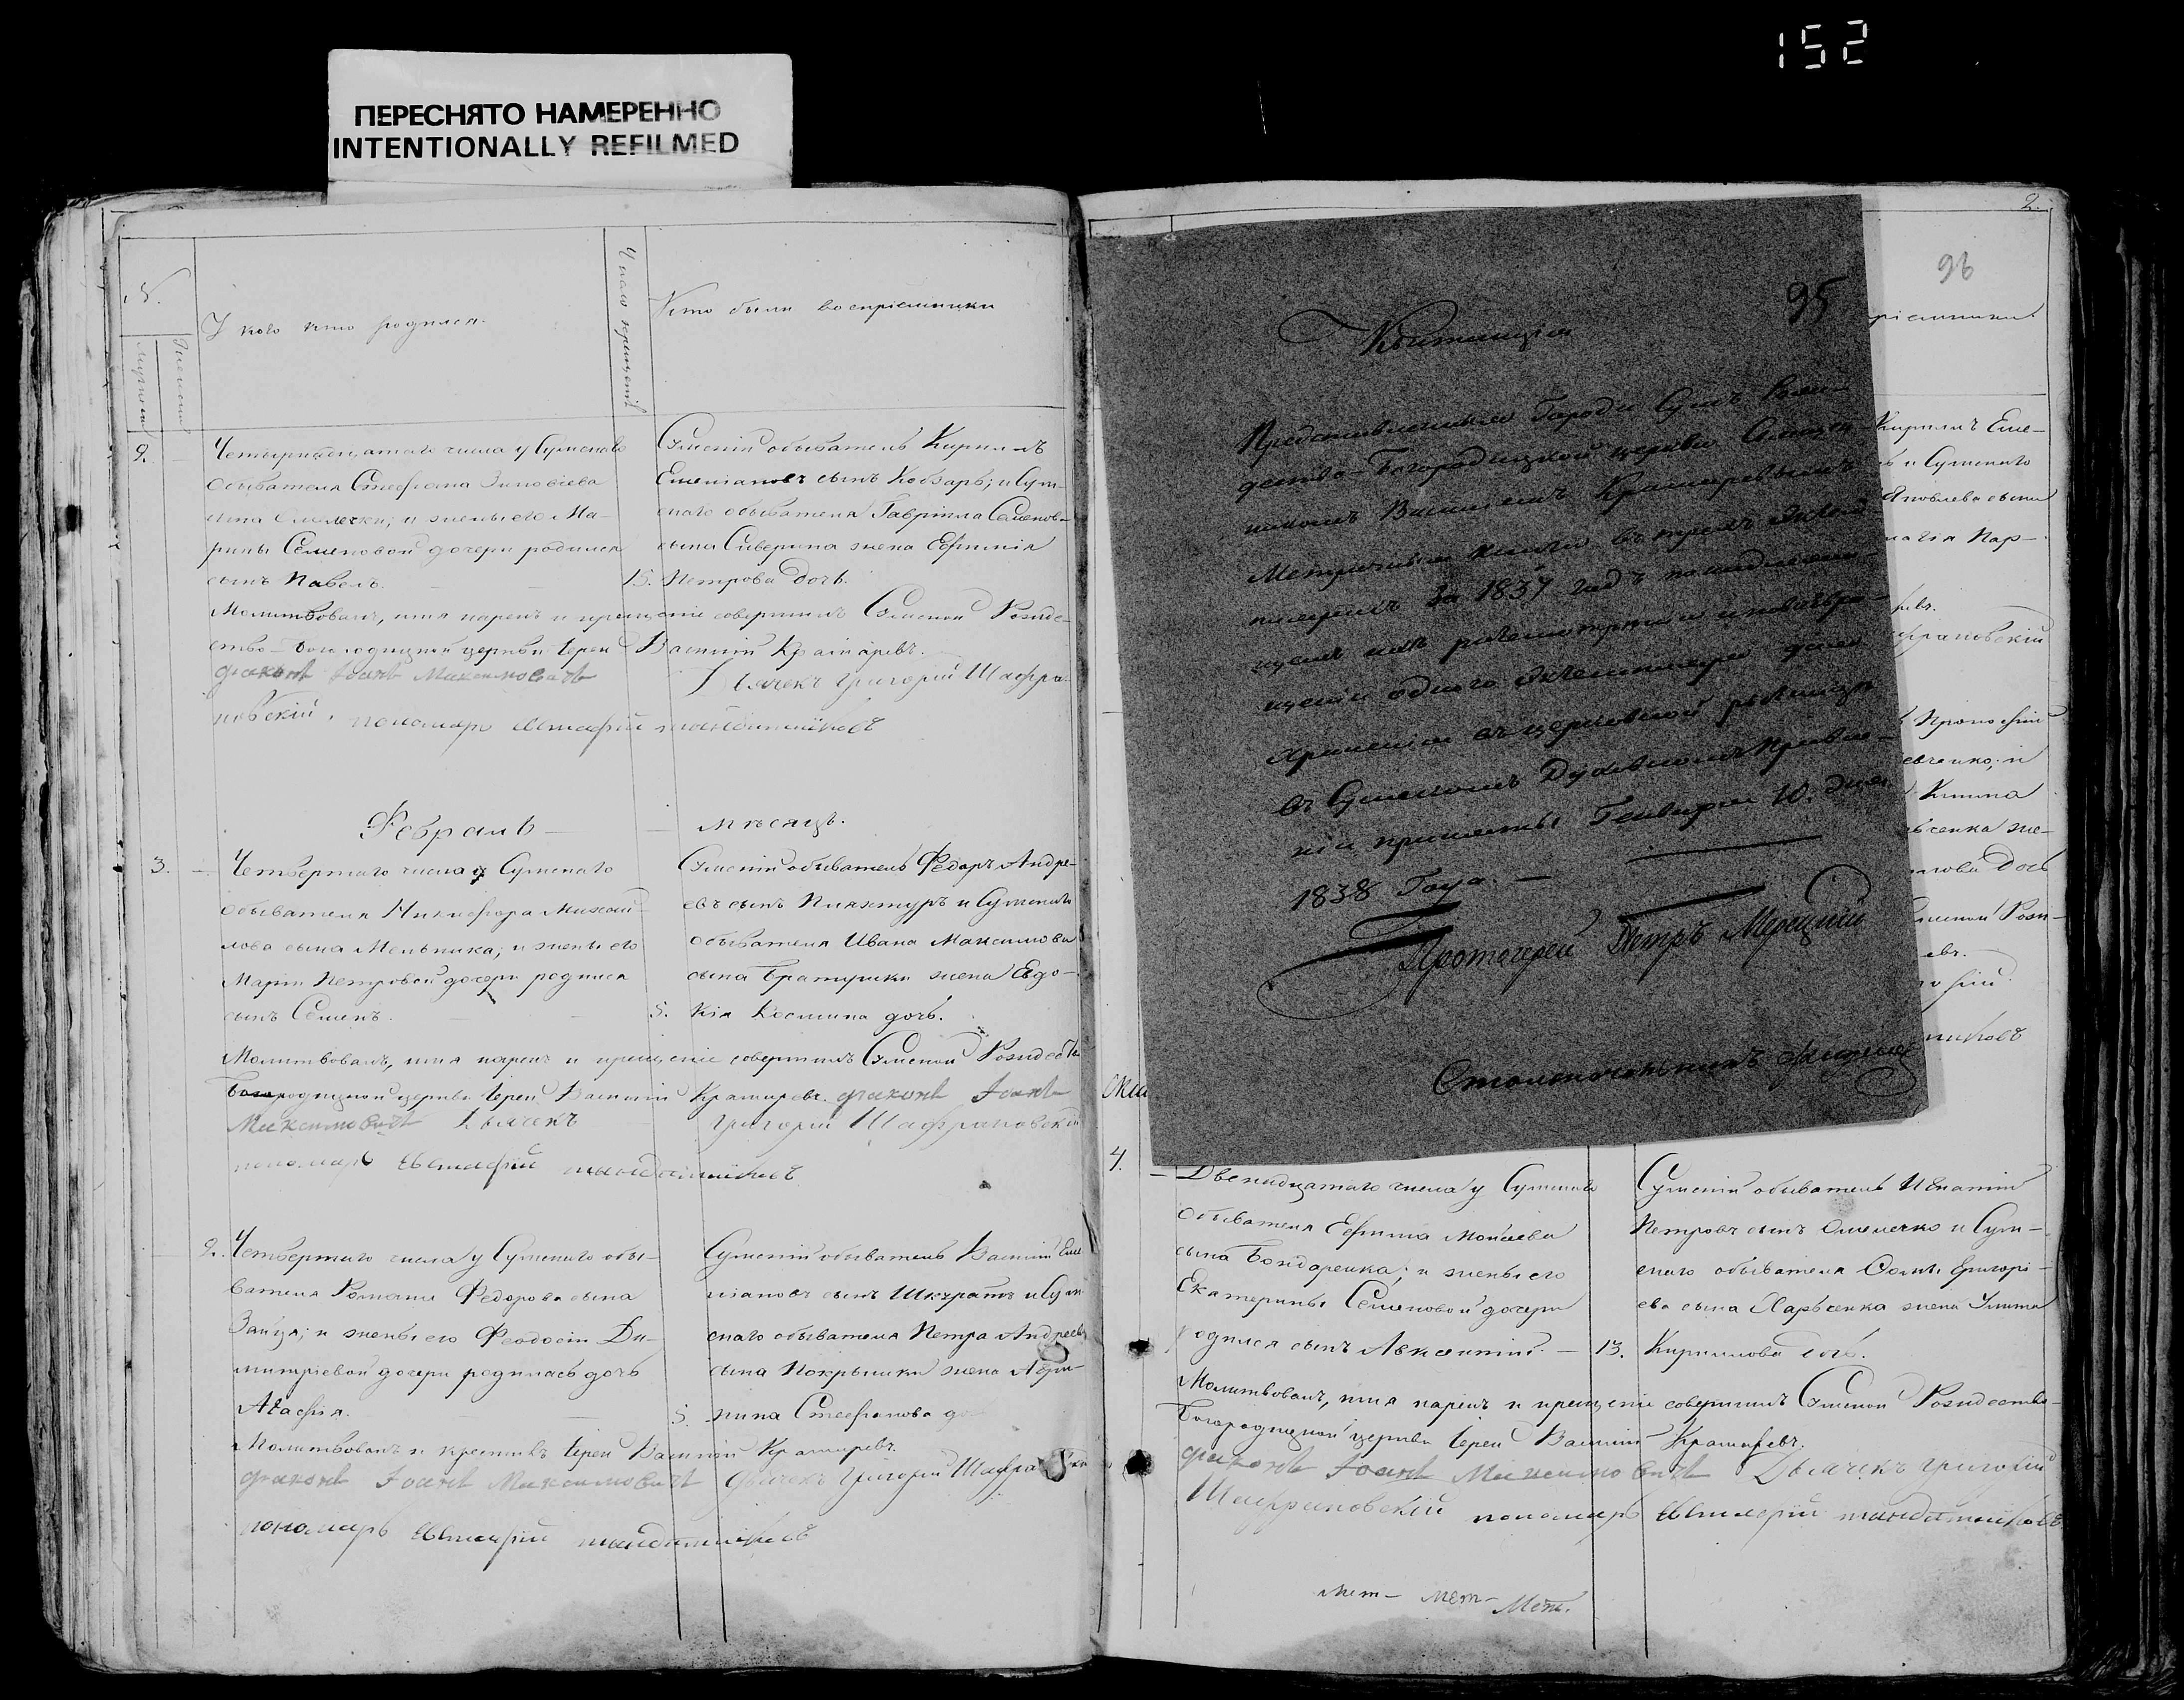 152
ПЕРЕСНЯТО НАМЕРЕННО
INTENTIONALLY REFILMED
№.
У кого кто родился.
Число крещенія
Кто были воспріемники
Мужеска
Женска
2.
Четырнадцатого числа у Сумскаго
Обывателя Стефана Зиновіева
сына Омелечки; и жены его Ма-
рины Семеновой дочери родился
сынъ Павелъ.
15.
Сумскій обыватель Кириллъ
Емеліановъ сынъ Кобзарь; и Сум-
скаго обывателя Гавріила Семенова
сына Сиверина жена Евфимія
Петрова дочь.
Молитвовалъ, имя нарекъ и крещеніе совершилъ Сумской Рождес-
ство-Богородицкой церкви Іерей Василій Крамаревъ.
діаконъ Іоаннъ Максимовичъ Дьячекъ Григорій Шафра-
новскій, пономарь Евстафій
Февраль — мѣсяцъ.
3.
Четвертаго числа у Сумскаго
обывателя Никифора Михай-
лова сына Мельника; и жены его
Маріи Петровой дочери родился
сынъ Семенъ.
5.
Сумскій обыватель Федоръ Андре-
евъ сынъ и Сумскаго
обывателя Ивана Максимова
сына жена Евдо-
кія Космина дочь.
Молитвовалъ, имя нарекъ и крещеніе совершилъ Сумской Рождество
Богородицкой церкви Іерей Василій Крамаревъ. діаконъ Іоаннъ
Максимовичъ Дьячекъ Григорій Шафрановскій
пономарь Евстафій
2.
Четвертаго числа у Сумскаго обы-
вателя Романа Федорова сына
Зайця; и жены его Феодосіи Ди-
митріевой дочери родилась дочь
Агафія.
5.
Сумскій обыватель Василій Еме
ліановъ сынъ Шкуратъ и Сум
скаго обывателя Петра Андреева
сына Покрышки жена Ага-
Стефанова до
Молитвовалъ и крестилъ Іерей Василій Крамаревъ.
діаконъ Іоаннъ Максимовичъ Дьячекъ Григорій Шафра
пономарь Евстафій
2.
96
95
Квитанція
Представленныя Города Сумъ Рож-
дество-Богородицкой церкви Священ-
никомъ Василіемъ Крамаревымъ
Метрическія книги въ трехъ экзем-
плярахъ за 1837 годъ
щеніи одного экземпляра для
храненія въ церковной ризницѣ
въ Сумскомъ Духовномъ Правле-
ніи приняты Генваря 10. дня
1838 Года. —
Протоіерей Петръ Мерецкій
Столоначальникъ
пріемники.
Кириллъ Еме-
ъ и Сумскаго
Яковлева сына
Пар-
Прокофій
енко; и
ьсенка же-
лова Дочь
Сумской Рож-
евъ.
4.
Двенадцатаго числа у Сумскаго
Обывателя Евфима Моисеева
сына Бондаренка; и жены его
Екатерины Семеновой дочери
родился сынъ Авксентій. —
13.
Сумскій обыватель Игнатій
Петровъ сынъ Омелечко и Сум-
скаго обывателя Григорі-
ева сына Харьсенка жена Улита
Кириллова дочь.
Молитвовалъ, имя нарекъ и крещеніе совершилъ Сумской Рождество
Богородицкой церкви Іерей Василій Крамаревъ.
діаконъ Іоаннъ Максимовичъ Дьячекъ Григорій
Шафрановскій пономарь Евстафій
мет — мет — мет.